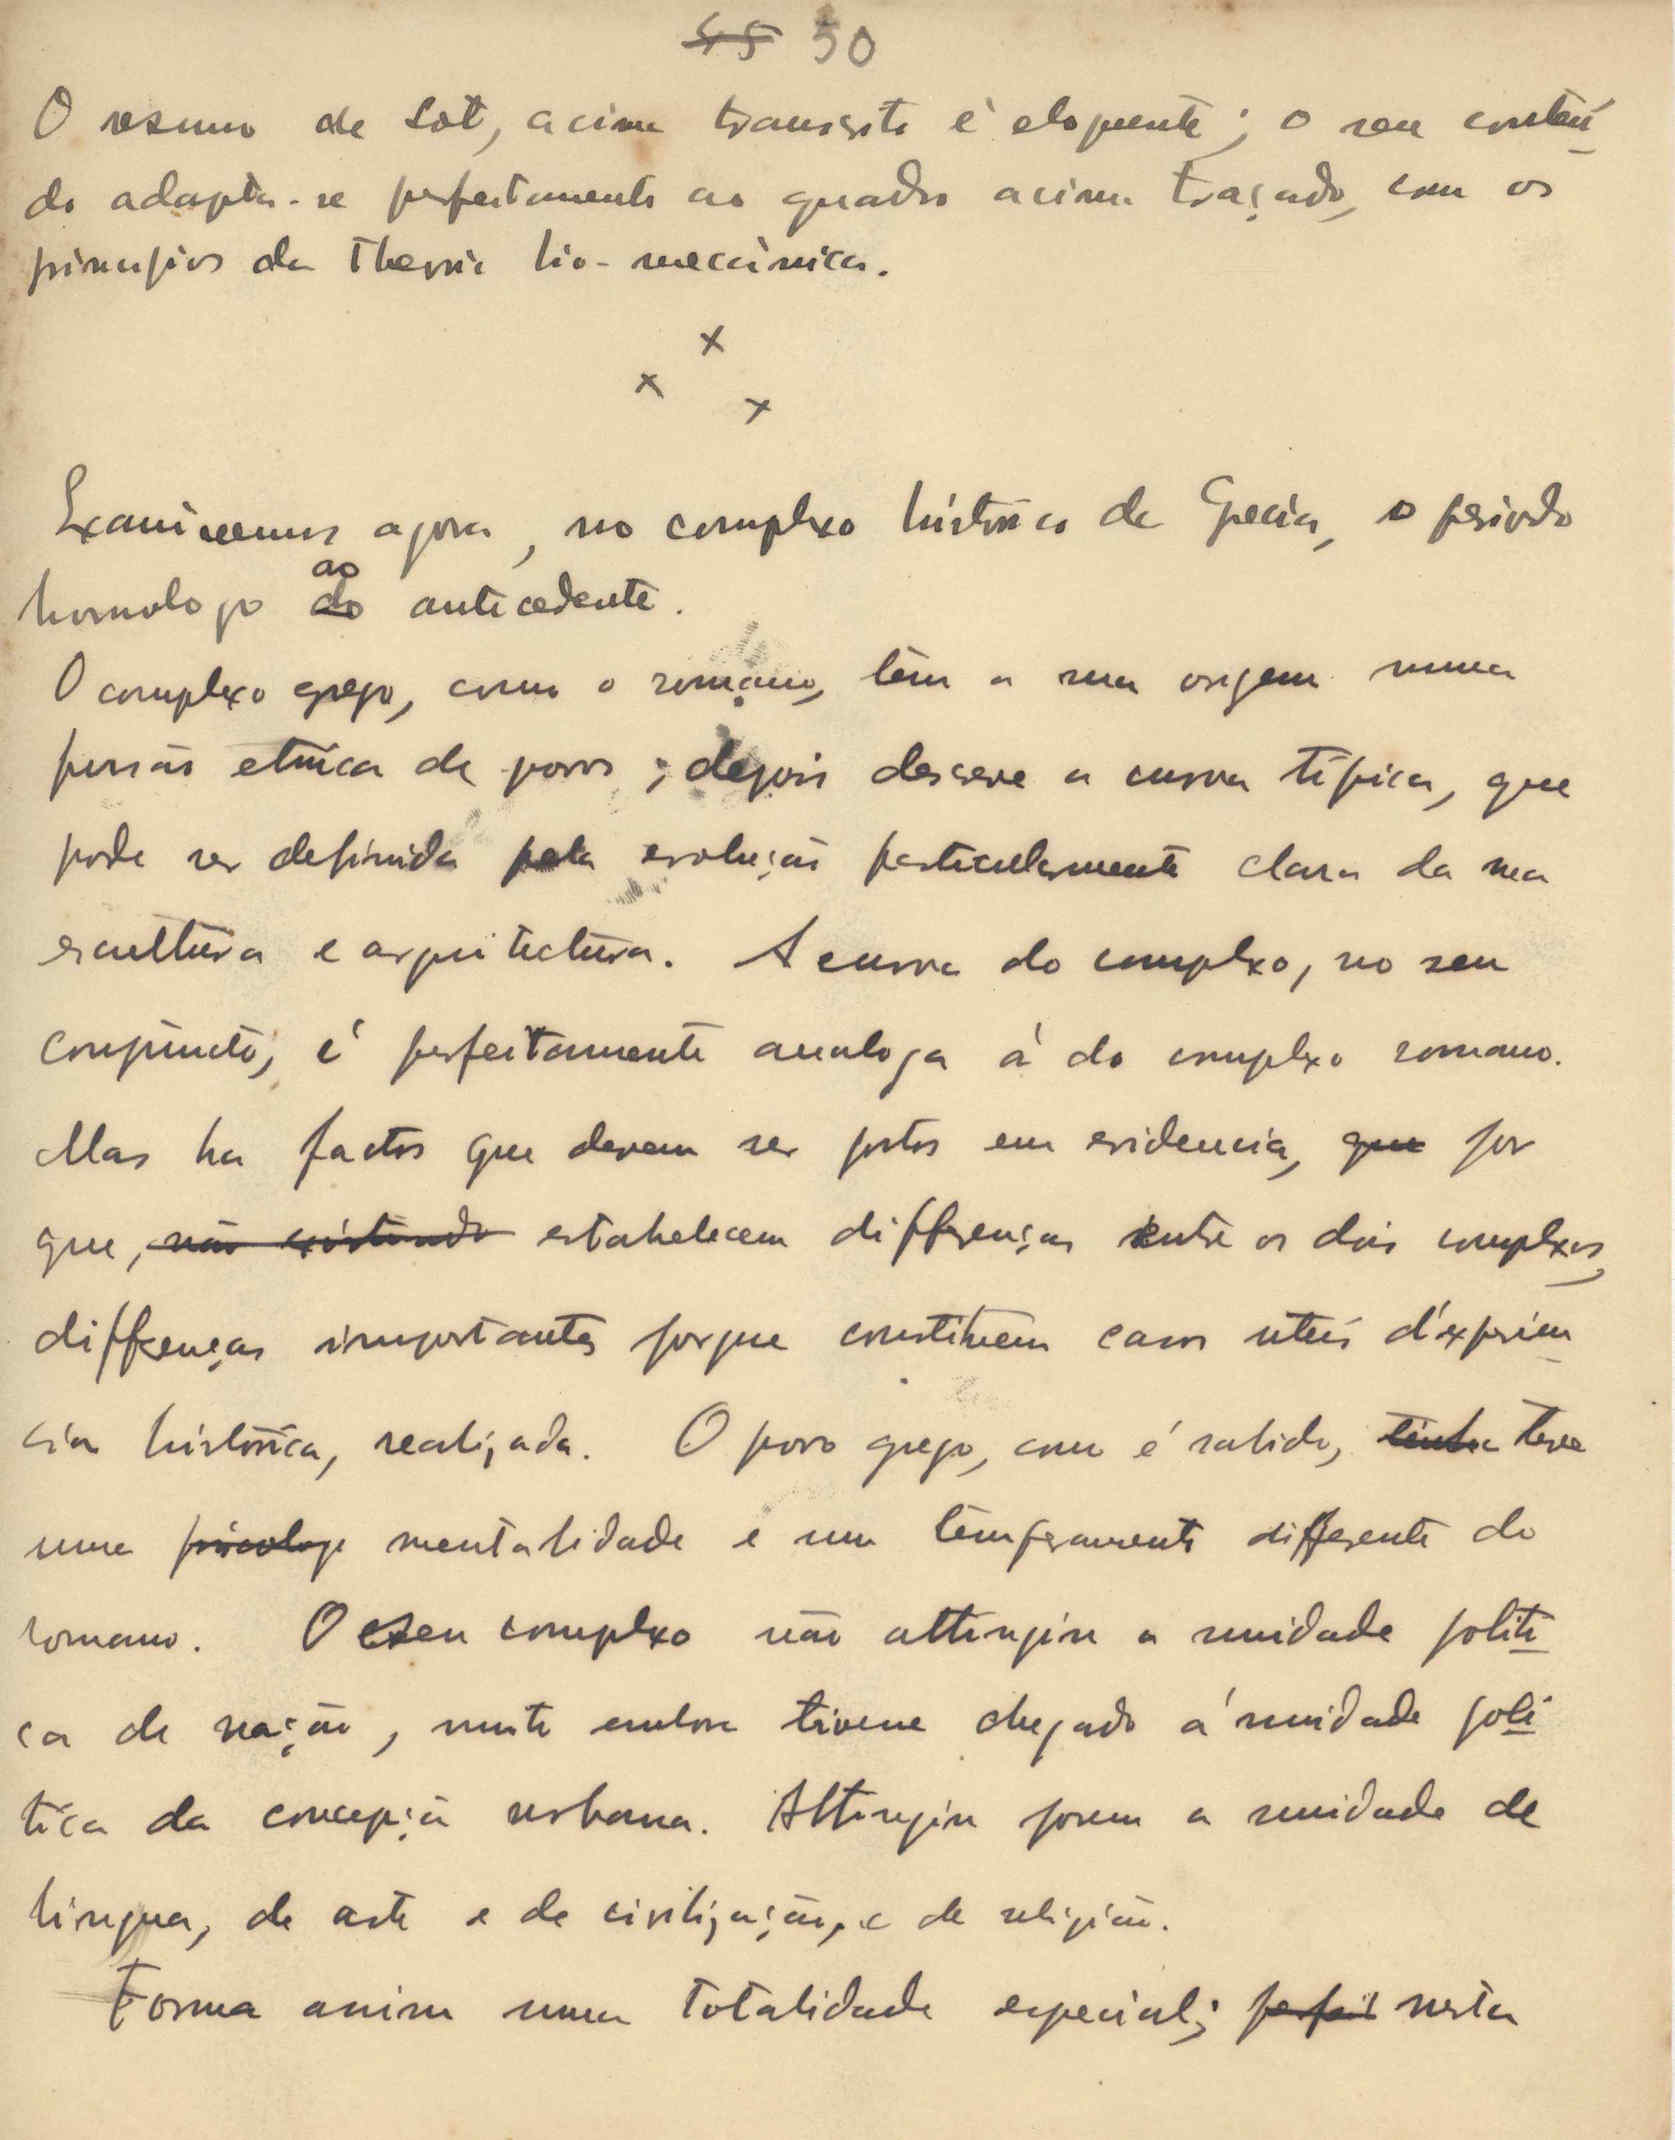 45 50
O resumo de Lot, acima transcrito é eloquente; o seu conteú
do adapta-se perfeitamente ao quadro acima traçado, com os
principios da theoria bio-mecânica.
x
x x
Examinemos agora, no complexo histórico da Grecia, o periodo
ao
homologo do antecedente.
O complexo grego, como o romano, têm a sua origem numa
fusão etnica de povos; depois descreve a curva tipica, que
pode ser definida pela evolução particularmente clara da sua
escultura e arquitectura. A curva do complexo, no seu
conjuncto, é perfeitamente analoga á do complexo romano.
Mas ha factos que devem ser postos em evidencia, que por
que, não existindo estabelecem differenças entre os dois complexos,
differenças importantes porque constituem casos uteis d'experien
cia histórica, realizada. O povo grego, como é sabido, tinha teve
uma psicologi mentalidade e um temperamento differente do
romano. O seu complexo não attingiu a unidade politi
ca de nação, muito embora tivesse chegado á unidade poli
tica da concepção urbana. Attingiu porem a unidade de
lingua, de arte e de civilização, e de religião.
Forma assim uma totalidade especial; nesta